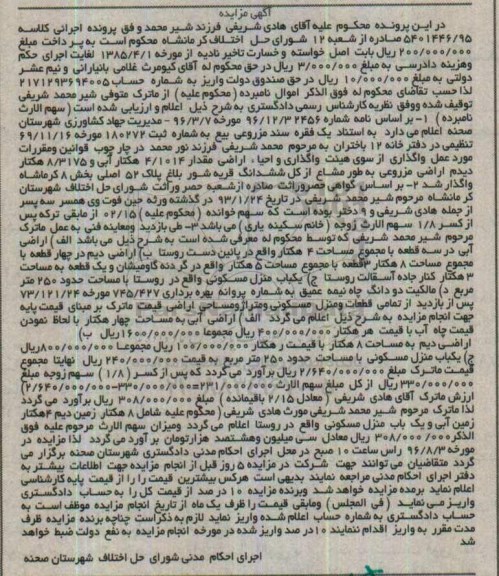 آگهی مزایده
در این پرونده محکوم علیه آقای هادی شریفی فرزند شیر محمد و فق پرونده اجرائی کلاسه
۵۴۰۱۴۴۶/۹۵ صادره از شعبه ۱۲ شورای حل اختلاف کرمانشاه محکوم است به پرداخت مبلغ
۲۰۰/۰۰۰/۰۰۰ ریال بابت اصل خواسته و خسارت تاخیر تادیه از مورخه ۱۳۸۵/۴/۱ لغایت اجرای حکم
وهزینه دادرسی به مبلغ ۳/۰۰۰/۰۰۰ ریال در حق محکوم له آقای کیومرث غلامی بانیارانی و نیم عشر
دولتی به مبلغ ۱۰/۰۰۰/۰۰۰ ریال در حق صندوق دولت واریز به شماره حساب ۲۱۷۱۲۹۳۶۹۴۰۰۵
لذا حسب تقاضای محکوم له فوق الذکر اموال نامبرده (محکوم علیه) از ماترک متوفی شیر محمد شریفی
توقیف شده ووفق نظریه کارشناس رسمی دادگستری به شرح ذیل اعلام و ارزیابی شده است (سهم الارث
نامبرده) ۱- بر اساس نامه شماره ۹۶/۱۲/۳۲۴۵۶ مورخه ۹۶/۳/۷ - مدیریت جهاد کشاورزی شهرستان
صحنه اعلام می دارد به استناد یک فقره سند مزروعی بیع به شماره ثبت ۱۸۰۲۷۲ مورخه ۶۹/۱۱/۱۶
تنظیمی در دفتر خانه ۱۲ باختران به مرحوم محمد شریفی فرزند نور محمد در چار چوب قوانین ومقررات
مورد عمل واگذاری از سوی هیئت واگذاری و احیاء اراضی مقدار ۴/۱۰۱۴ هکتار آبی و ۸/۳۱۷۵ هکتار
دیم اراضی مزروعی به طور مشاع از کل ششدانگ قریه شور بلاغ پلاک ۵۲ اصلی بخش ۸ کرمانشاه
واگذار شد ۲- بر اساس گواهی حصروراثت صادره از شعبه حصر وراثت شورای حل اختلاف شهرستان
کرمانشاه مرحوم شیر محمد شریفی در تاریخ ۹۳/۱/۲۴ در گذشته ورثه حین فوت وی همسر سه پسر
از جمله هادی شریفی و ۹ دختر بوده است که سهم خوانده (محکوم علیه) ۰۲/۱۵ از مابقی ترکه پس
از کسر ۱/۸ سهم الارث زوجه (خانم سکینه یاری) می باشد ۳- طی بازدید ومعاینه فنی به عمل ماترک
مرحوم شیر محمد شریفی که توسط محکوم له معرفی شده است به شرح ذیل می باشد الف) اراضی
آبی در سه قطعه با مجموع مساحت ۴ هکتار واقع در پائین دست روستا ب) اراضی دیم در چهار قطعه با
مجموع مساحت ۸ هکتار ۳قطعه با مجموع مساحت ۵ هکتار واقع در گردنه گاومیشان و یک قطعه به مساحت
۳ هکتار کنار جاده آسفالت روستا ج) یکباب منزل مسکونی واقع در روستا با مساحت حدود ۲۵۰ متر
مربع د) مالکیت دو دانگ چاه نیمه عمیق به شماره پروانه بهره برداری ۷۴۵/۴۲۷ مورخه ۷۳/۱۲/۲۴
پس از بازدید از تمامی قطعات ومنزل مسکونی ومتراژومساحی اراضی قیمت ماترک بر مبنای قیمت پایه
جهت انجام مزایده به شرح ذیل اعلام می گردد الف) اراضی آبی به مساحت چهار هکتار با لحاظ نمودن
قیمت چاه آب با قیمت هر هکتار ۴۰۰/۰۰۰/۰۰۰ ریال مجموعا ۱۶۰۰/۰۰۰/۰۰۰ ریال ب)
اراضی دیم به مساحت ۸ هکتار با قیمت ر هکتار ۱۰۰/۰۰۰/۰۰۰ ریال مجموعا ۸۰۰/۰۰۰/۰۰۰ریال
ج) یکباب منزل مسکونی با مساحت حدود ۲۵۰ متر مربع به قیمت ۲۴۰/۰۰۰/۰۰۰ ریال نهایتا مجموع
قیمت ماترک مبلغ ۲/۶۴۰/۰۰۰/۰۰۰ ریال برآورد می گردد که پس از کسر (۱/۸) سهم زوجه مبلغ
۳۳۰/۰۰۰/۰۰۰ ریال از کل مبلغ سهم الارث ۲۳۱/۰۰۰/۰۰۰۰=۳۳۰/۰۰۰/۰۰۰-(۲/۶۴۰/۰۰۰/۰۰۰)
ارزش ماترک آقای هادی شریفی (معادل ۲/۱۵ باقیمانده) مبلغ ۳۰۸/۰۰۰/۰۰۰ ریال برآورد می گردد
لذا ماترک مرحوم شیر محمد شریفی مورث هادی شریفی (محکوم علیه شامل ۸ هکتار زمین دیم ۴هکتار
زمین آبی و یک باب منزل مسکونی واقع در روستا اعلام می گردد ومیزان سهم الارث مرحوم علیه فوق
الذکر ۳۰۸/۰۰۰/۰۰۰ ریال معادل سی میلیون وهشتصد هزارتومان بر آورد می گردد لذا مزایده در
مورخه ۹۶/۸/۳ راس ساعت ۱۰ صبح در محل اجرای احکام مدنی دادگستری شهرستان صحنه برگزار می
گردد متقاضیان می توانند جهت شرکت در مزایده ۵ روز قبل از انجام مزایده جهت اطلاعات بیشتر به
دفتر اجرای احکام مدنی مراجعه نمایند بدیهی است هرکس بیشترین قیمت را از قیمت پایه کارشناسی
اعلام نماید برنده مزایده خواهد شد وبرنده مزایده ۱۰ در صد از قیمت کل را به حساب دادگستری
واریز می نماید (فی المجلس) ومابقی قیمت را ظرف یک ماه از تاریخ انجام مزایده موظف است به
حساب دادگستری به شماره حساب اعلام شده واریز نماید لازم به ذکر است چنانچه برنده مزایده ظرف
مدت مقرر به واریز اقدام ننمایند ۱۰در صد واریز شده در مورخه انجام مزایده به نفع دولت ضبط خواهد
شد
اجرای احکام مدنی شورای حل اختلاف شهرستان صحنه